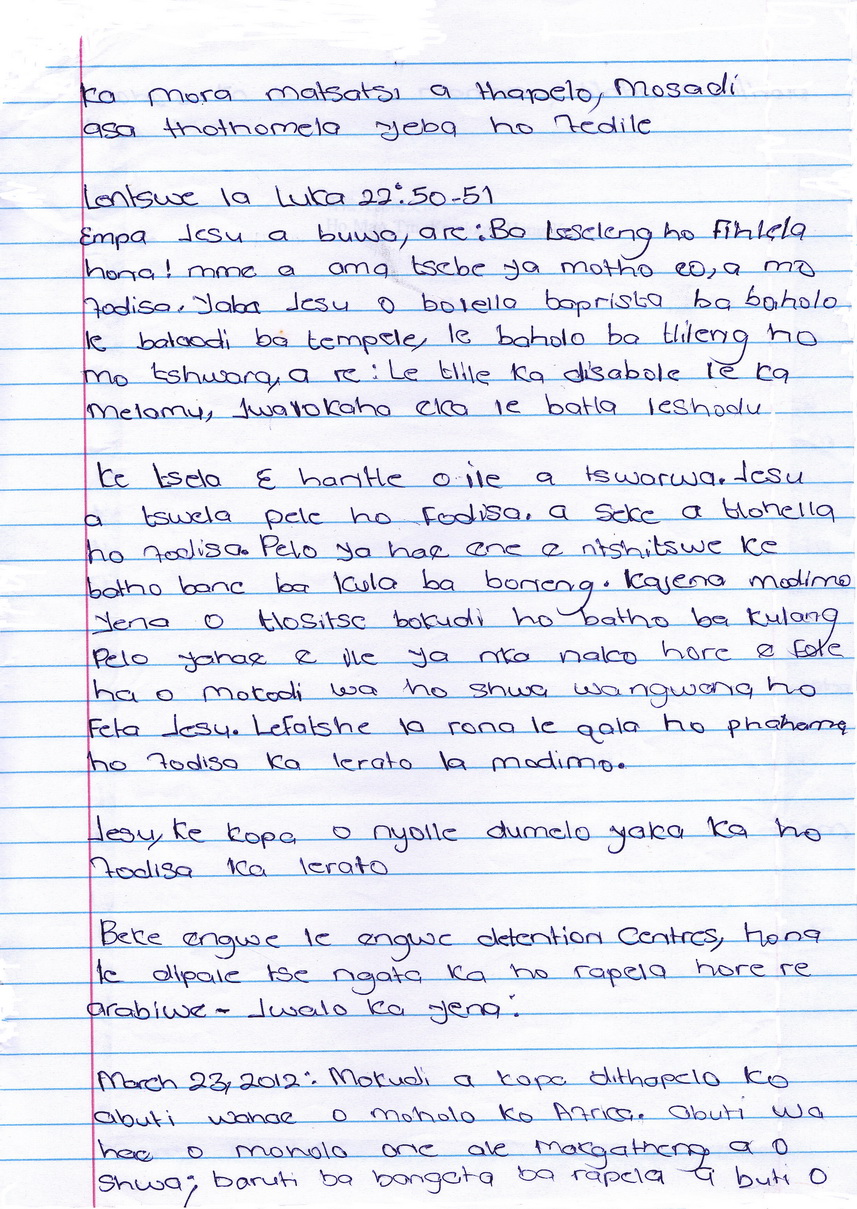 Ka mora matsatsi a thapelo, Mosadi
asa thothomela yeba ho Fedile
Lentswe la Luka 22:50-51
Empa Jesu a buwa, are: Ba Leseleng ho fihlela
hona! mme a ama tsebe ya motho eo, a mo
Fodisa. Yaba Jesu o bolella baprista ba baholo
le balaodi ba tempele, le baholo ba tlileng ho
mo tshwara, a re: Le tlile ka disabole le ka
melamu, Jwalokaha eka le batla leshodu
Ke tsela E hantle o ile a tswarwa. Jesu
a tswela pele ho Fodisa. a seke a tlohella
ho Fodisa. Pelo ya hae ene e ntshitswe ke
batho bane ba kula ba boneng. Kajena modimo
yena o tlositse bokudi ho batho ba kulang
Pelo yahae e ile ya nka nako hore e fole
ha o mokodi wa ho shwa wangwana ho
Feta Jesu. Lefatshe la rona le qala ho phahama
ho Fodisa ka lerato la modimo.
Jesu, ke kopa o nyolle dumelo yaka ka ho
Fodisa ka lerato
Beke engwe le engwe detention Centres, hona
le dipale tse ngata ka ho rapela hore re
arabiwe - Jwalo ka yena:
March 23, 2012: Mokudi a kopa dithapelo ko
abuti wahae o moholo ko Africa. abuti wa
hae o moholo one ale margatheng a o
shwa; baruti ba bangata ba rapela a buti o